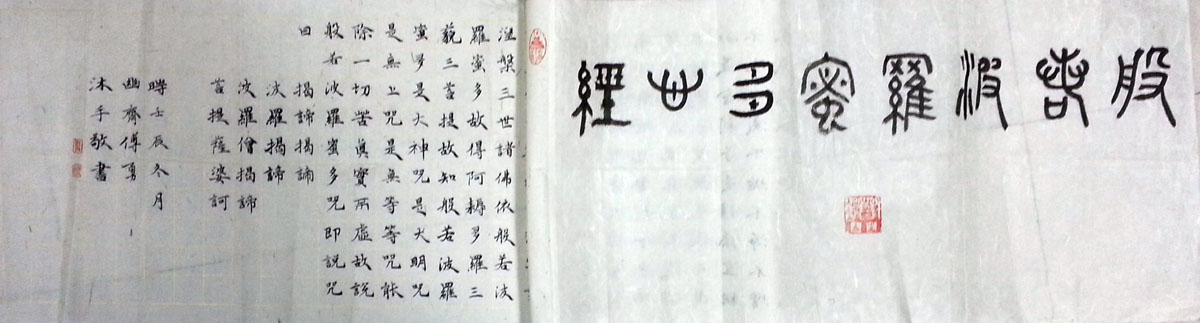 般若波羅蜜多心經
涅槃三世諸佛依般若波
羅蜜多故得阿耨多羅三
藐三菩提故知般若波羅
蜜多是大神咒是大明咒
是無上咒是無等等咒能
除一切苦眞實不虛故說
般若波羅蜜多咒即說咒
曰
揭諦揭諦
波羅揭諦
波羅僧揭諦
菩提薩婆訶
時壬辰冬月
幽齋傅勇
沐手敬書